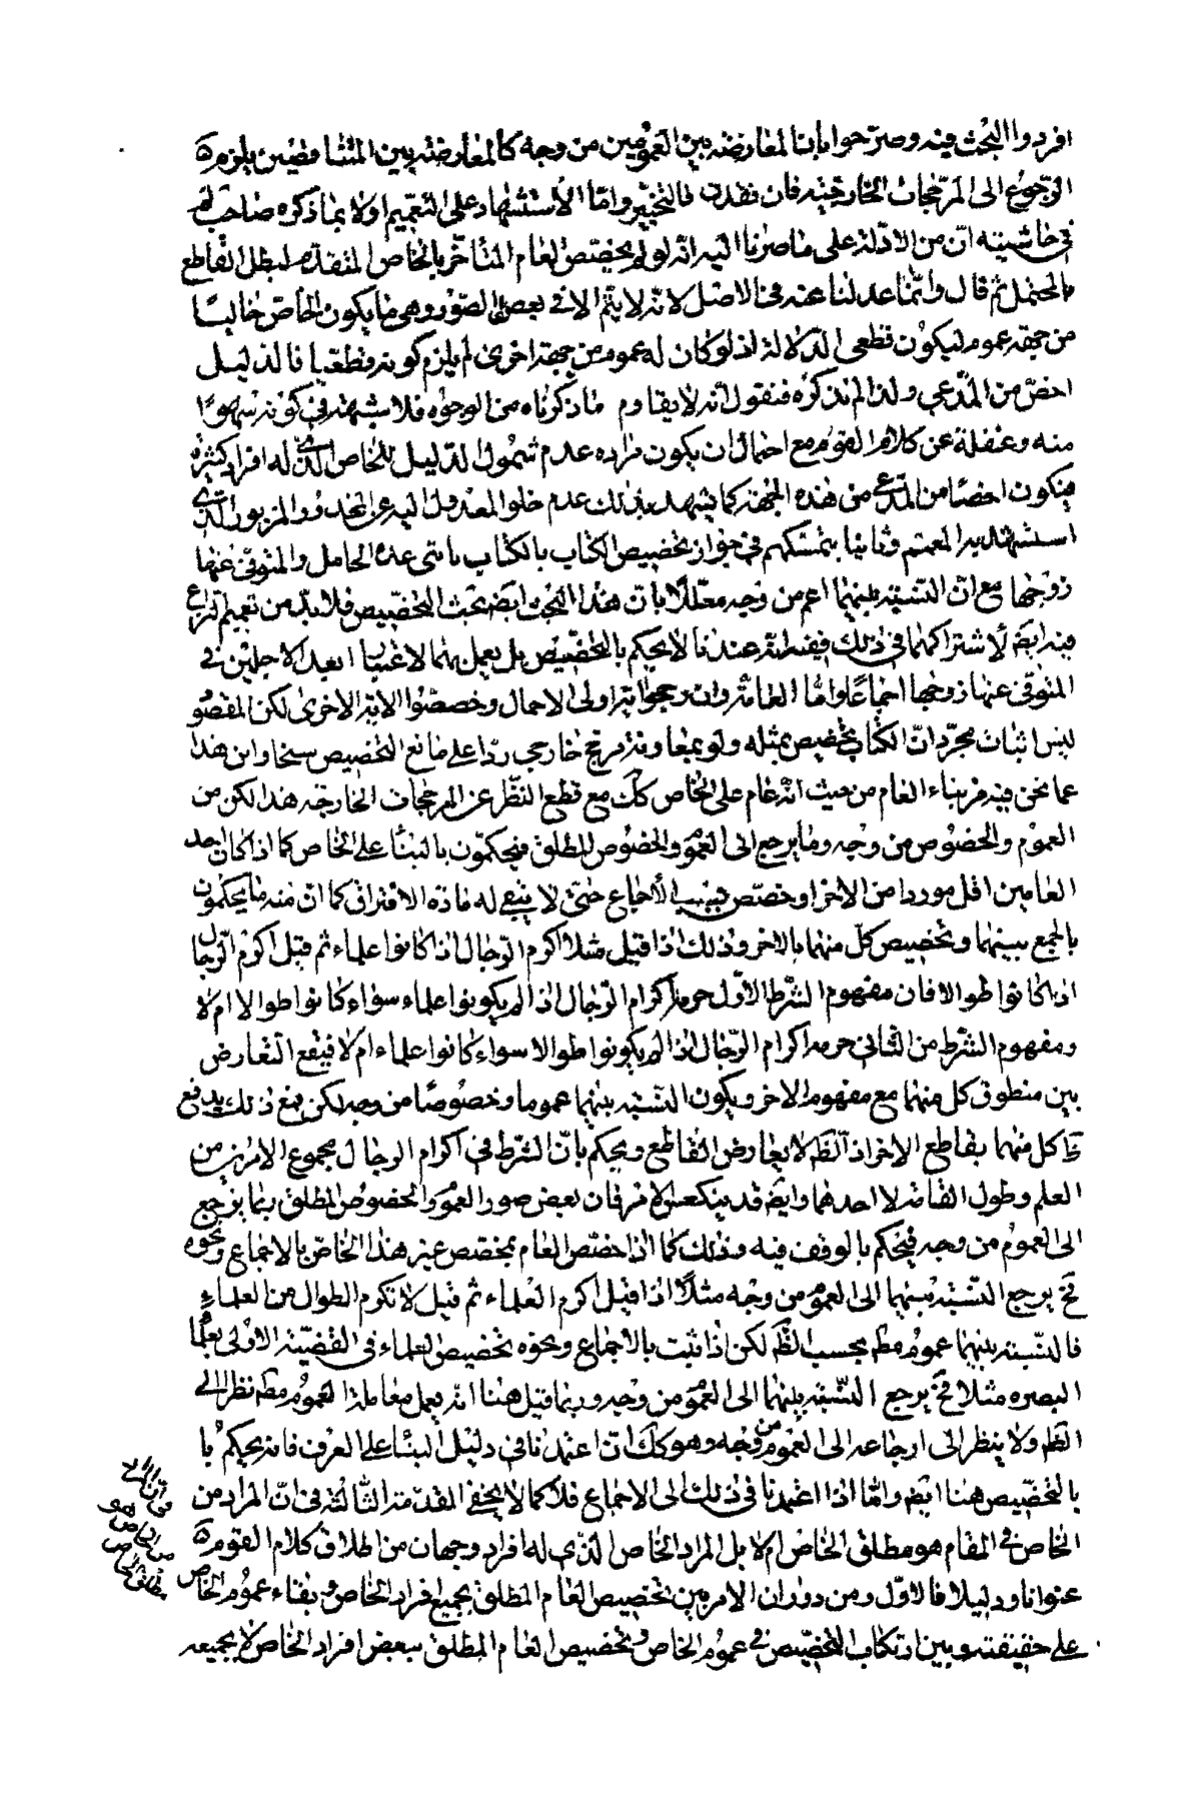 افردوا البحث فيه وصرّحوا بان المعارضة بين العمومين من وجه كالمعارضة بين المتناقضين يلزم فيه
الرجوع الى المرجحات الخارجية فان فقدت فالتخيير واما الاستشهاد على التعميم اولا بما ذكره صاحب لم
في حاشيته انّ من الادلة على ما صرنا اليه انه لو لم يخصّص العام المتاخّر بالخاص المتقدم لبطل القاطع
بالمحتمل ثم قال وانّما عدلنا عنه في الاصل لانه لا يتم الا في بعض الصّور وهي ما يكون الخاصّ خاليًا
من جهة عموم ليكون قطعي الدّلالة اذ لو كان له عموم من جهة اخرى لم يلزم كونه قطعيا فالدليل
اخصّ من المدّعي ولذا لم نذكره فنقول انه لا يقاوم ما ذكرناه من الوجوه فلا شبهة في كونه سهوًا
منه وغفلة عن كلام القوم مع احتمال ان يكون مراده عدم شمول الدّليل للخاص الذي له افراد كثيرة
فيكون اخصّا من المدّعي من هذه الجهة كما يشهد بذلك عدم خلوا المعدول اليه عن المحذور المزبور الّذي
استشهد به المعمم وثانيا بتمسّكهم في جواز تخصيص الكتاب بالكتاب بايتي عدة الحامل والمتوفّى عنها
زوجها مع انّ النسبة بينهما اعم من وجه معلّلًا بانّ هذا البحث ايضا بحث التخصيص فلا بدّ من تعميم النزاع
فيه ايضا لاشتراكهما في ذلك ففيه انه عندنا لا يحكم بالتخصيص بل يعمل بهما لاعتبار ابعد الاجلين في
المتوفى عنها زوجها اجماعًا وامّا العامّة وان رجحوا اية اولى الاحمال وخصصّوا الاية الاخرى لكن المقصو
ليس اثبات مجرّد انّ الكتاب يخصّص بمثله ولو بمعاونة مرجّح خارجي ردّا على مانع التخصيص نسخا واين هذا
عما نحن فيه من بناء العام من حيث انه عام على الخاص كك مع قطع النّظر عن المرجحات الخارجية هذا لكن من
العموم والخصوص من وجه وما يرجع الى العموم والخصوص المطلق فيحكمون بالبناء على الخاص كما اذا كان احد
العامين اقل موردا من الاخر او خصّص بسبب الاجماع حتى لا يبقى له مادة الافتراق كما ان منه ما يحكمون
بالجمع بينهما وتخصيص كلّ منهما بالاخر وذلك اذا قيل مثلا اكرم الرّجال اذا كانوا علماء ثم قيل اكرم الرّجال
اذا كانوا طوالا فان مفهوم الشّرط الاوّل حرمة اكرام الرّجال اذا لم يكونوا علماء سواء كانوا طوالا ام لا
ومفهوم الشرط من الثاني حرمة اكرام الرّجال اذا لم يكونوا طوالا سواء كانوا علماء ام لا فيقع التعارض
بين منطوق كل منهما مع مفهوم الاخر ويكون النسبة بينهما عموما وخصوصًا من وجه لكن مع ذلك يدفع
ظ كل منهما بقاطع الاخر اذ الظ لا يعارض القاطع ويحكم بانّ الشرط في اكرام الرجال مجموع الامرين من
العلم وطول القامة لا احدهما وايضا قد ينعكس الامر فان بعض صور العموم والخصوص المطلق ربما يرجع
الى العموم من وجه فيحكم بالوقف فيه وذلك كما اذا خصّص العام بمخصص غير هذا الخاصّ بالاجماع ونحوه
فح يرجع النسبة بينهما الى العموم من وجه مثلًا اذا قيل اكرم العلماء ثم قيل لا تكرم الطوال من العلماء
فالنّسبة بينهما عموم مطم بحسب الظّ لكن اذا ثبت بالاجماع ونحوه تخصيص العلماء في القضيّة الاولى بعلماء
البصره مثلا فح يرجع النّسبة بينهما الى العموم من وجه وربما قيل هنا انه يعمل معاملة العموم مطم نظرا الى
الظ ولا ينظر الى ارجاعه الى العموم من وجه وهو كك ان اعتمدنا في دليل البناء على العرف فانه يحكم با
بالتخصيص هنا ايضا وامّا اذا اعتمدنا في ذلك الى الاجماع فلا كما لا يخفى المقدّمة الثّالثة في انّ المراد من
الخاص في المقام هو مطلق الخاص ام لا بل المراد الخاص الّذي له افراد وجهان من اطلاق كلام القوم في ان المراد من الخاص هو مطلق الخاص
عنوانا ودليلا فالاوّل ومن دوران الامر بين تخصيص العام المطلق بجميع افراد الخاص وبقاء عموم الخاص
على حقيقته وبين ارتكاب التخصيص في عموم الخاص وتخصيص العام المطلق ببعض افراد الخاص لا بجميعه